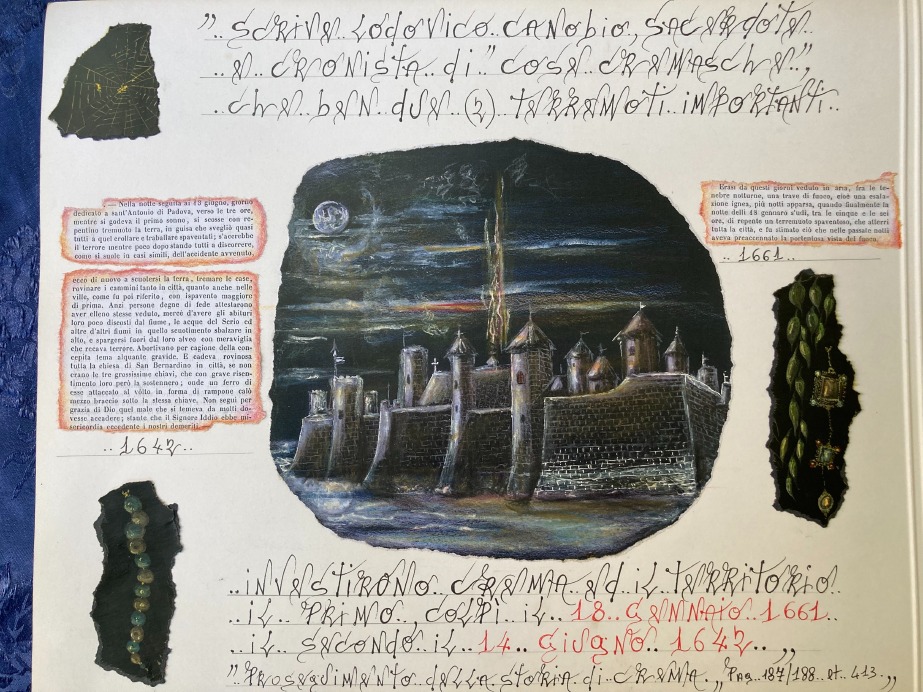 ".. SCRIVE LODOVICO CANOBIO, SACERDOTE
.. E.. CRONISTA.. di.." COSE CREMASCHE",
.. CHE.. bEN.. dUE.. (2).. TERREMOTI.. IMPORTANTI..
— Nella notte seguita ai 13 giugno, giorno
dedicato a sant'Antonio di Padova, verso le tre ore,
mentre si godeva il primo sonno, si scosse con re-
pentino tremuoto la terra, in guisa che svegliò quasi
tutti a quel crollare e traballare spaventati; s'acerebbe
il terrore mentre poco dopo stando tutti a discorrere,
come si suole in casi simili, dell'accidente avvenuto,
ecco di nuovo a scuotersi la terra, tremare le case,
rovinare i cammini tanto in città, quanto anche nelle
ville, come fu poi riferito, con ispavento maggiore
di prima. Anzi persone degne di fede attestarono
aver elleno stesse veduto, mercè d'avere gli abituri
loro poco discosti dal fiume, le acque del Serio ed
altre d'altri fiumi in quello scuotimento sbalzare in
alto, e spargersi fuori dal loro alveo con meraviglia
che recava terrore. Abortivano per cagione della con-
cepita tema alquante gravide. E cadeva rovinosa
tutta la chiesa di San Bernardino in città, se non
erano le tre grossissime chiavi, che con grave risen-
timento loro però la sostennero; onde un ferro di
esse attaccato al vòlto in forma di rampone calò
mezzo braccio sotto la stessa chiave. Non seguì per
grazia di Dio quel male che si temeva da molti do-
vesse accadere; stante che il Signore Iddio ebbe mi-
sericordia eccedente i nostri demeriti.
.. 1642..
Erasi da questi giorni veduto in aria, fra le te-
nebre notturne, una trave di fuoco, cioè una esala-
zione ignea, più notti apparsa, quando finalmente la
notte delli 18 gennaro s'udì, tra le cinque e le sei
ore, di repente un terremuoto spaventoso, che atterrì
tutta la città, e fu stimato ciò che nelle passate notti
aveva preaccennato la portentosa vista del fuoco.
.. 1661..
.. INVESTIRONO.. CREMA.. Ed.. IL.. TERRITORIO..
.. IL.. PRIMO.., COLPÌ.. IL.. 18.. GENNAIO.. 1661..
.. IL.. SECONDO.. IL.. 14.. GIUGNO.. 1642.. ,,
" PROSEGUIMENTO.. DELLA STORIA.. di.. CREMA.. " PAG.. 187/188.. et.. 413.. ,,